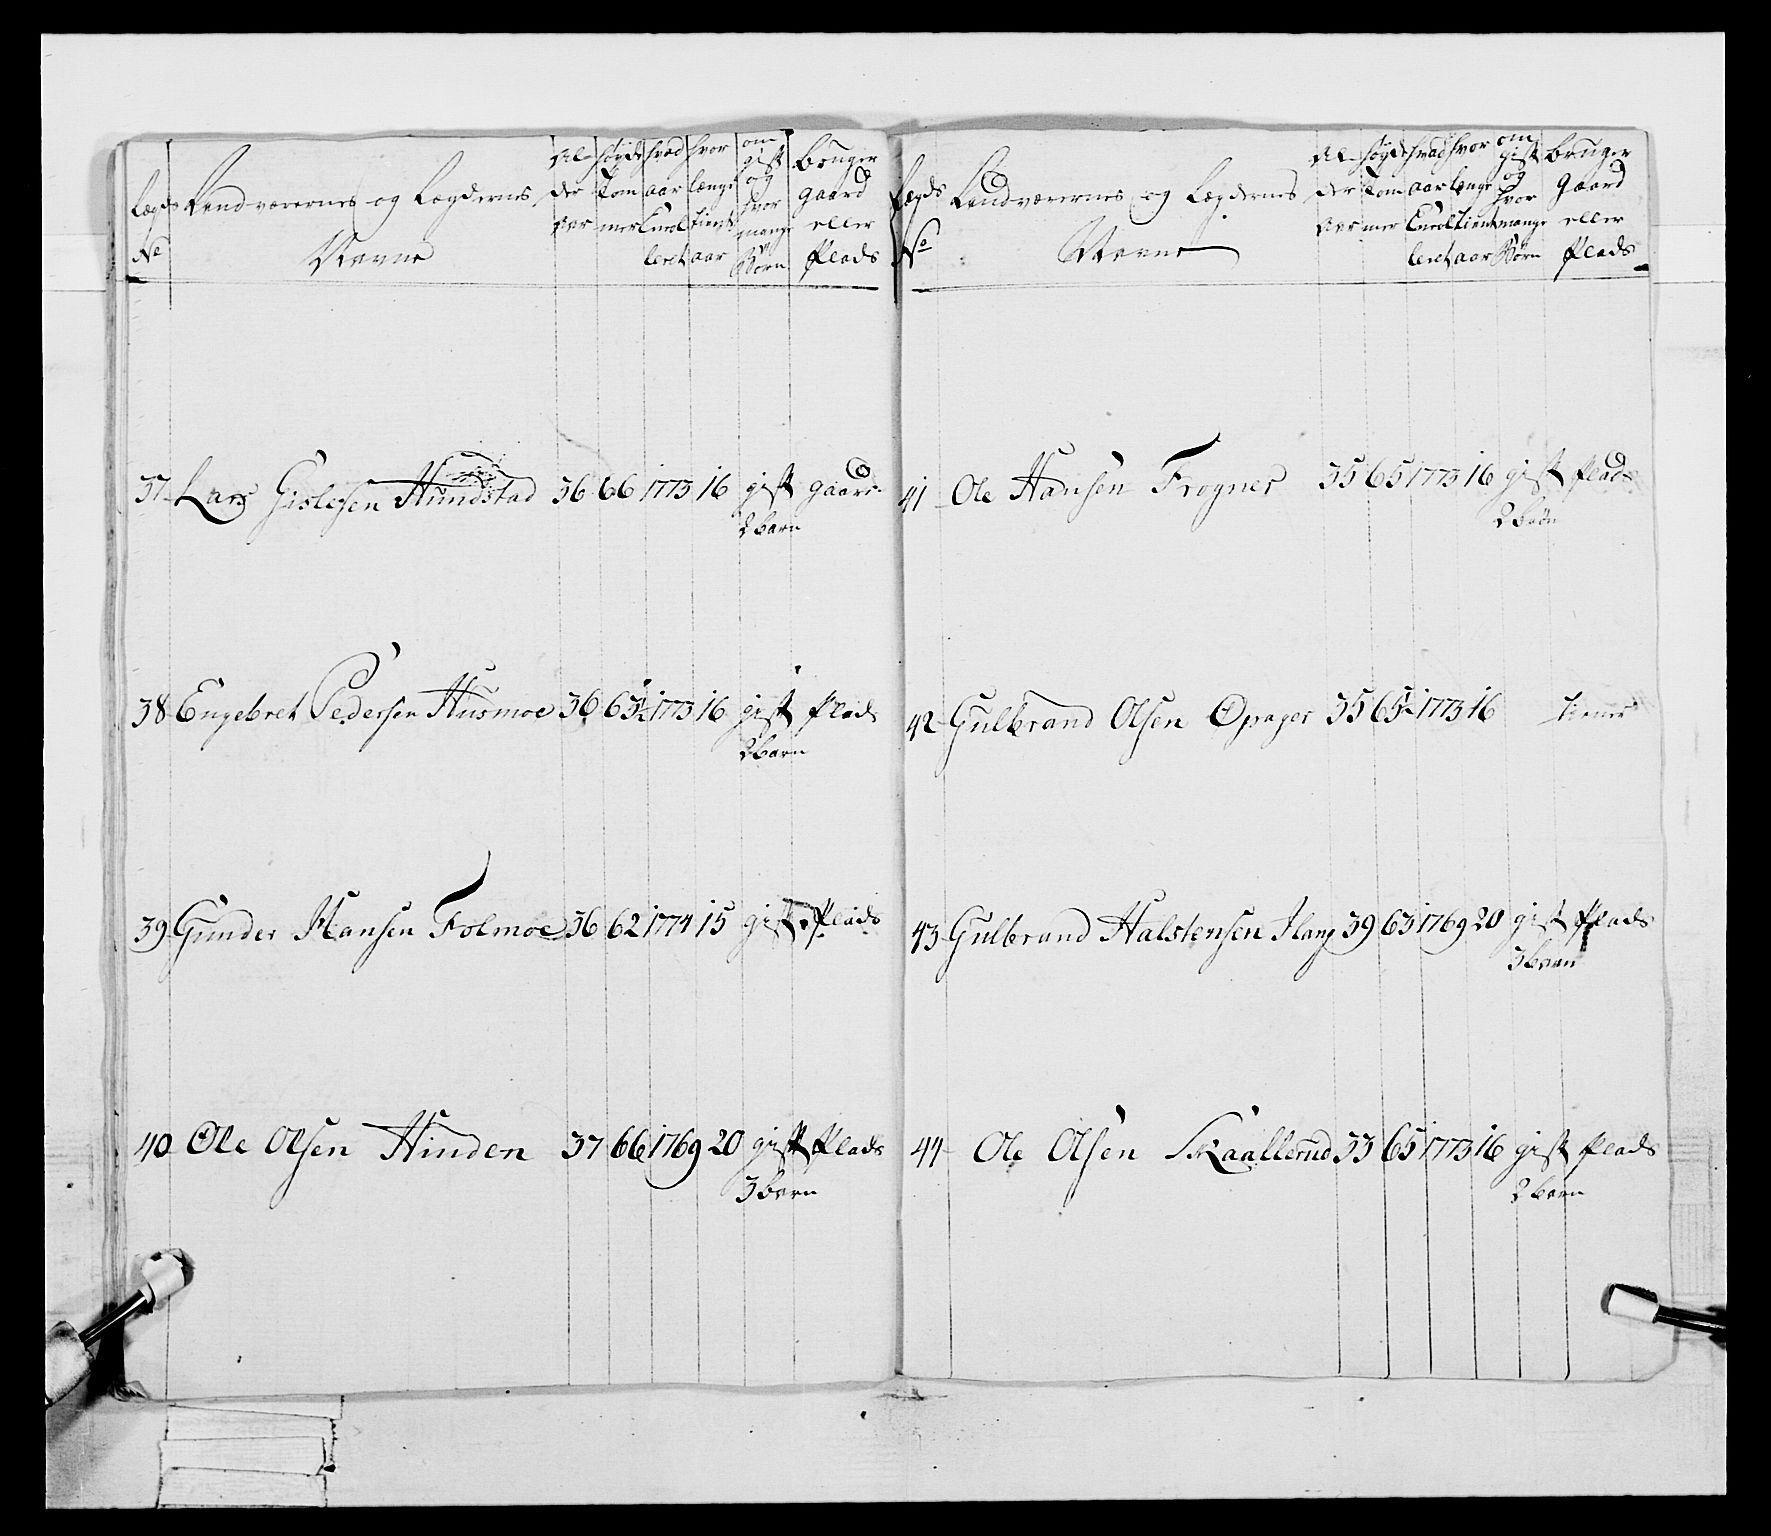 Lægds No
Landværernes og Lægdernes Navne
Al der Aar
høyde Tom mer
hvad aar Enrol leret
hvor længe tient aar
om gift og hvor mange Børn
bruger gaard eller Plads
37 Lars Gislesen Hundstad 36 66 1773 16 gift gaard
2 barn
38 Engebret Pedersen Husmoe 36 63½ 1773 16 gift Plads
2 barn
39 Gunder Hansen Folmoe 36 62 1774 15 gift Plads
40 Ole Olsen Hinden 37 66 1769 20 gift Plads
3 barn
Lægds No
Landværernes og Lægdernes Navne
Al der Aar
høyde Tom mer
hvad aar Enrol leret
hvor længe tient aar
om gift og hvor mange Børn
bruger gaard eller Plads
41 Ole Hansen Frogner 35 65 1773 16 gift Plads
2 børn
42 Gulbrand Olsen Opager 35 65½ 1773 16 tiener
43 Gulbrand Halstensen Hang 39 63 1769 20 gift Plads
3 barn
44 Ole Olsen Skaallerud 33 65 1773 16 gift Plads
2 barn